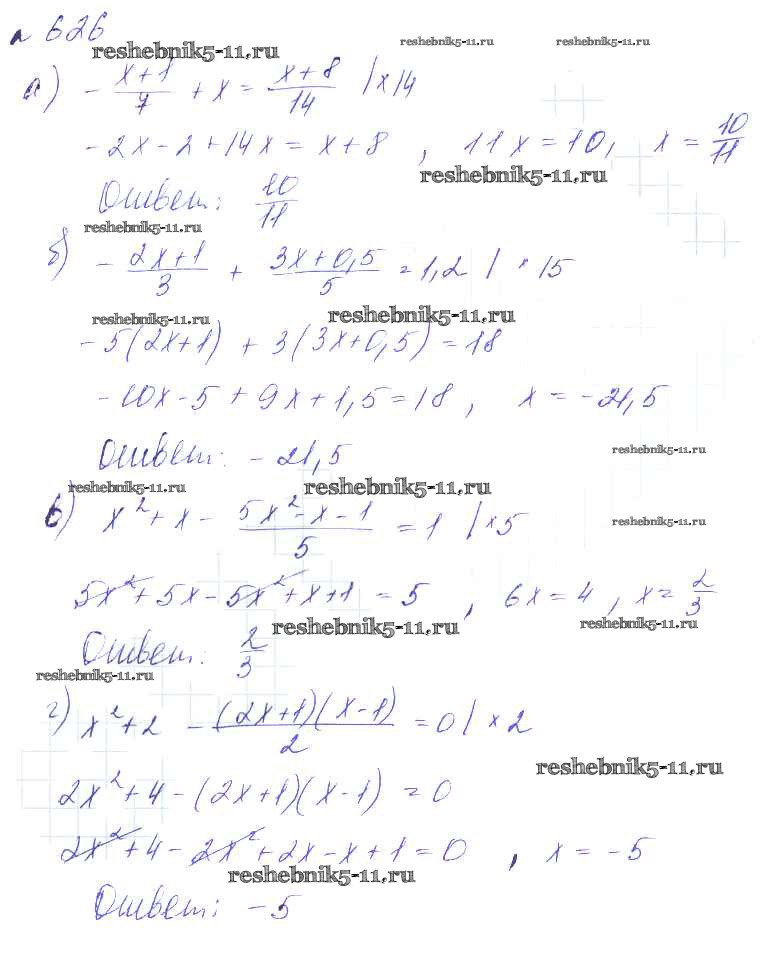 № 626
reshebnik5-11.ru reshebnik5-11.ru reshebnik5-11.ru
а) -(x+1)/7 + x = (x+8)/14 | ×14
-2x-2+14x = x+8, 11x=10, x = 10/11
reshebnik5-11.ru
Ответ: 10/11
reshebnik5-11.ru
б) -(2x+1)/3 + (3x+0,5)/5 = 1,2 | · 15
reshebnik5-11.ru reshebnik5-11.ru
-5(2x+1) + 3(3x+0,5) = 18
-10x-5+9x+1,5=18, x = -21,5
Ответ: -21,5
reshebnik5-11.ru
reshebnik5-11.ru reshebnik5-11.ru
в) x²+x - (5x²-x-1)/5 = 1 | ×5
reshebnik5-11.ru
5x²+5x-5x²+x+1 = 5, 6x=4, x = 2/3
reshebnik5-11.ru reshebnik5-11.ru
Ответ: 2/3
reshebnik5-11.ru
г) x²+2 - (2x+1)(x-1)/2 = 0 | ×2
reshebnik5-11.ru
2x²+4-(2x+1)(x-1) = 0
2x²+4-2x²+2x-x+1=0, x = -5
reshebnik5-11.ru
Ответ: -5